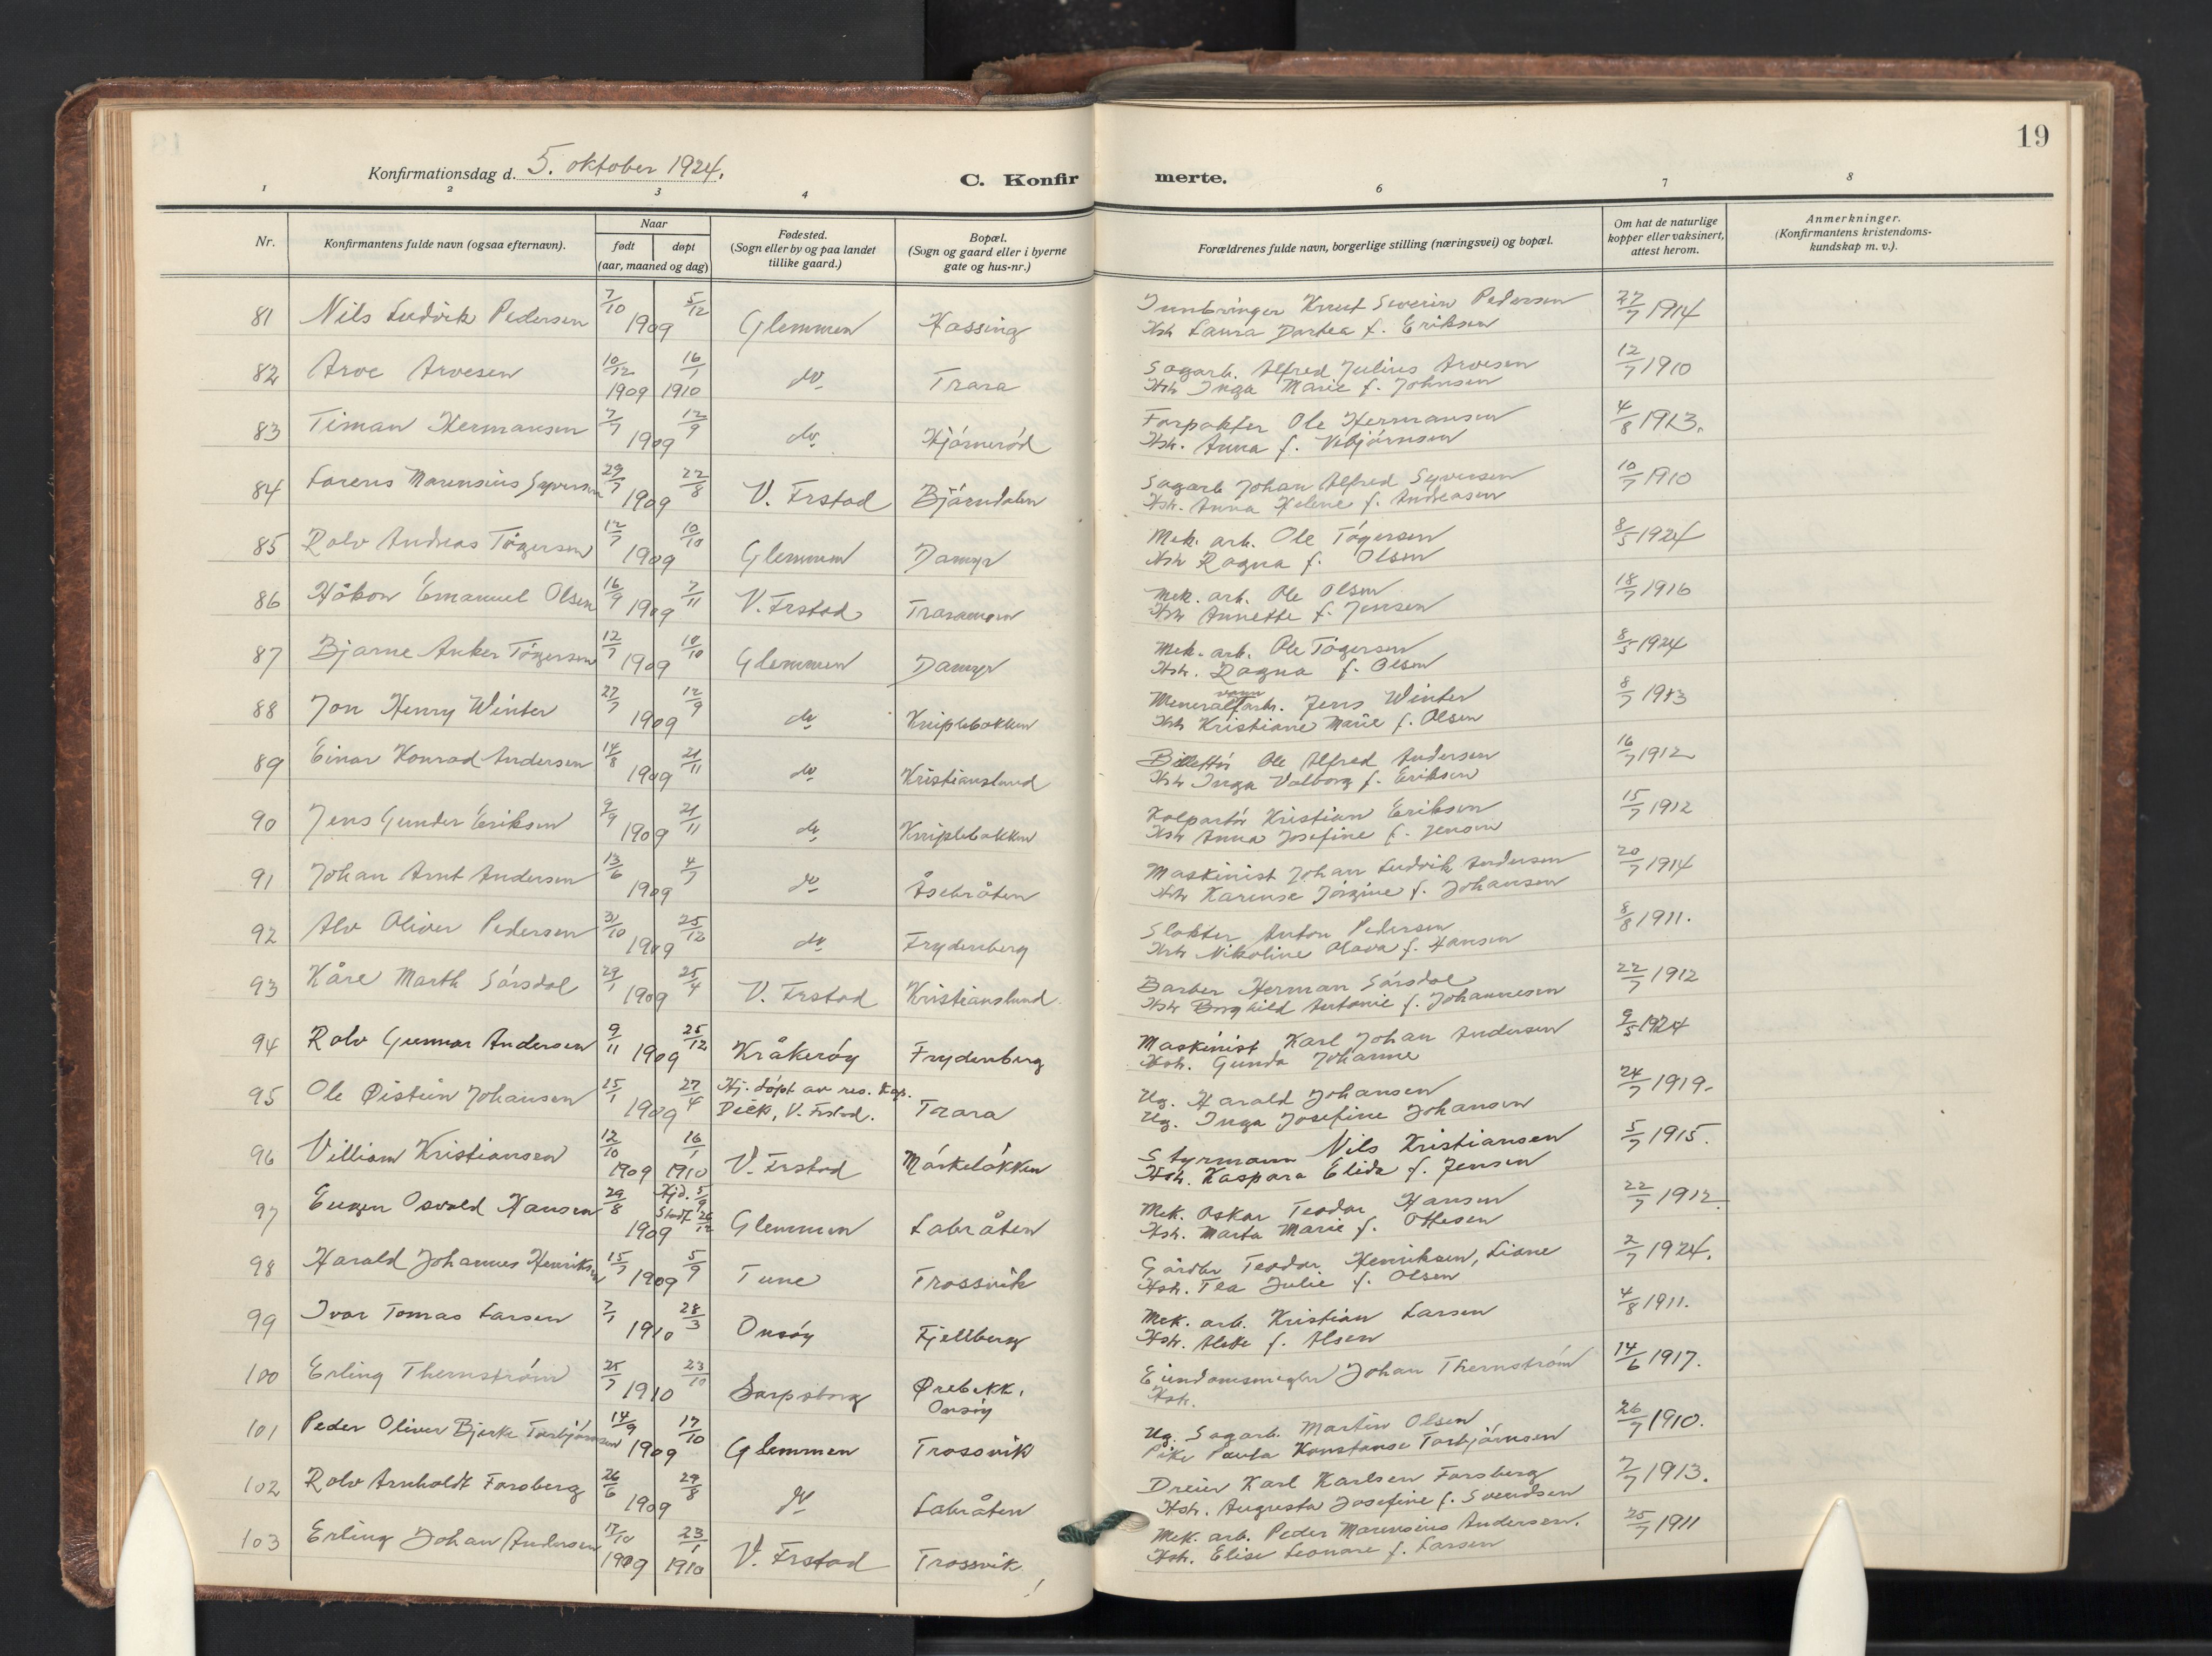 19
Konfirmationsdag d. 5. oktober 1924.
C. Konfirmerte.
1 2 3 4 6 7 8
Nr.
Konfirmantens fulde navn (ogsaa efternavn).
Naar
født døpt
(aar, maaned og dag)
Fødested.
(Sogn eller by og paa landet
tillike gaard.)
Bopæl.
(Sogn og gaard eller i byerne
gate og hus-nr.)
Forældrenes fulde navn, borgerlige stilling (næringsvei) og bopæl.
Om hat de naturlige
kopper eller vaksinert,
attest herom.
Anmerkninger.
(Konfirmantens kristendoms-
kundskap m. v.).
81 Nils Ludvik Pedersen 7/10 1909 5/12 Glemmen Hassing Knut Severin Pedersen 27/7 1914
Hstr Laura Dortea f. Eriksen
82 Arve Arvesen 10/12 1909 16/1 1910 do Trara Sagarb. Alfred Julius Arvesen 12/7 1910
Hstr Inga Marie f. Johnsen
83 Timan Hermansen 7/7 1909 12/9 do Hjørnerød Forpakter Ole Hermansen 4/8 1923.
Hstr. Anna f. Vebjørnsen
84 Lorens Marensius Syversen 29/7 1909 22/8 V. Frstad Bjørndalen Sagarb Johan Alfred Syversen 10/7 1910
Hstr. Anna Helene f. Andreasen
85 Rolv Andreas Tøgersen 12/7 1909 10/10 Glemmen Damyr Mek. arb. Ole Tøgersen 8/5 1924
Hstr Ragna f. Olsen
86 Håkon Emanuel Olsen 16/9 1909 7/11 V. Frstad Traramoen Mek. arb. Ole Olsen 18/7 1916
Hstr Annette f. Jensen
87 Bjarne Anker Tøgersen 12/7 1909 10/10 Glemmen Damyr Mek. arb. Ole Tøgersen 8/5 1924
Hstr. Ragna f. Olsen
88 Jon Henry Winter 27/7 1909 12/9 do Kniplebakken Mineralvannfarb. Jens Winter 8/7 1913
Hstr Kristiane Marie f. Olsen
89 Einar Konrad Andersen 14/8 1909 21/11 do Kristianslund Billettør Ole Alfred Andersen 16/7 1912
Hstr Inga Valborg f. Eriksen
90 Jens Gunder Eriksen 9/9 1909 21/11 do Kniplebakken Kolportør Kristian Eriksen 15/7 1912
Hstr Anna Josefine f. Jensen
91 Johan Arnt Andersen 13/6 1909 4/7 do Åsebråten Maskinist Johan Ludvik Andersen 20/7 1914
Hstr Karense Jørgine f. Johansen
92 Alv Oliver Pedersen 31/10 1909 25/12 do Frydenberg Slakter Anton Pedersen 8/8 1911.
Hstr Nikoline Olava f. Hansen
93 Kåre Marth Sørsdal 29/1 1909 25/4 V. Frstad Kristianslund. Barber Herman Sørsdal 22/7 1912
Hstr Borghild Antonie f. Johannesen
94 Rolv Gunnar Andersen 9/11 1909 25/12 Kråkerøy Frydenberg Maskinist Karl Johan Andersen 9/5 1924
Hstr. Gunda Johanne
95 Ole Øistein Johansen 15/1 1909 27/4 Hj. døpt av res. kap. Trara Ug. Harald Johansen 24/7 1919.
Dick, V. Frstad. Ug. Inga Josefine Johansen
96 Villiam Kristiansen 12/10 1909 16/1 1910 V. Frstad Mørkeløkken Styrmann Nils Kristiansen 5/7 1915.
Hstr. Kaspara Elida f. Jensen
97 Eugen Osvald Hansen 29/8 1909 Hjd. 5/9 Stadf. 26/12 Glemmen Labråten Mek. Oskar Teodor Hansen 22/7 1912.
Hstr. Marta Marie f. Ottesen
98 Harald Johannes Henriksen 15/7 1909 5/9 Tune Trossvik Gårdbr Teodor Henriksen, Liane 2/7 1924.
Hstr. Tea Julie f. Olsen
99 Ivar Tomas Larsen 7/1 1910 28/3 Onsøy Fjellberg Mek. arb. Kristian Larsen 4/8 1911.
Hstr. Alete f. Alsen
100 Erling Thernstrøm 25/7 1910 23/10 Sarpsborg Ørebekk, Onsøy Eiendomsmegler Johan Thernstrøm 14/6 1917.
Hstr.
101 Peder Oliver Bjerke Torbjørnsen 14/9 1909 17/10 Glemmen Trossvik Ug. Sagarb. Martin Olsen 26/7 1910.
Pike Paula Konstanse Torbjørnsen
102 Rolv Arnholdt Forsberg 26/6 1909 29/8 do Labråten Dreier Karl Karlsen Forsberg 7/7 1913.
Hstr. Augusta Josefine f. Svendsen
103 Erling Johan Andersen 17/10 1909 23/1 1910 V. Frstad Trossvik Mek. arb. Peder Marensius Andersen. 25/7 1911
Hstr. Elise Leonare f. Larsen